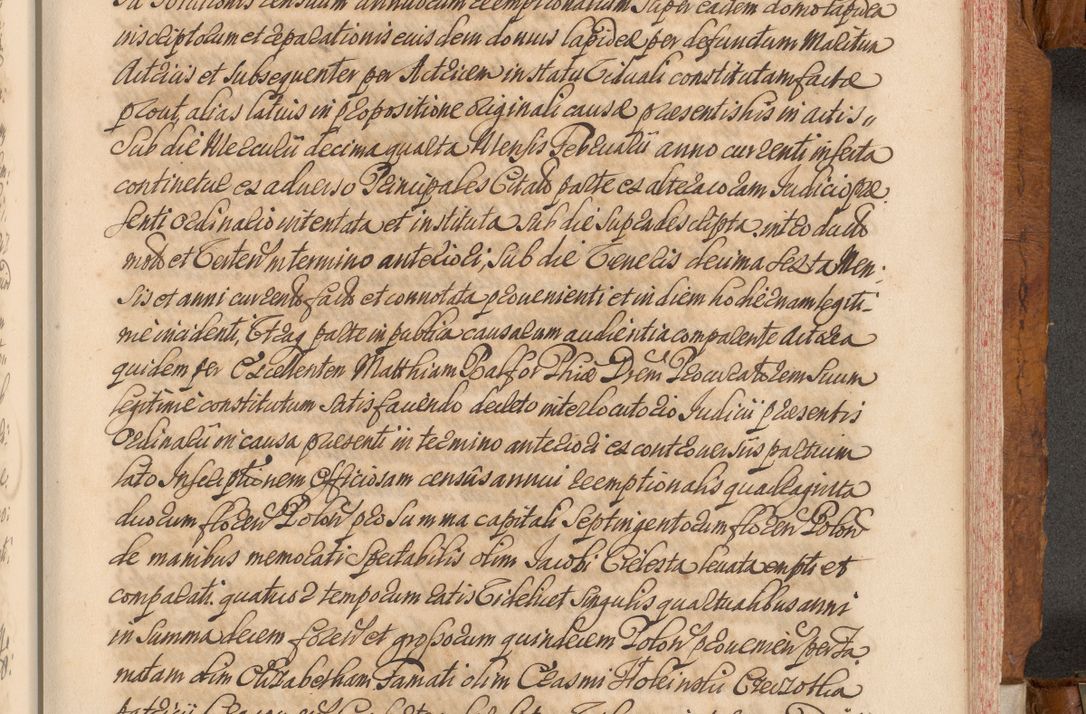 inscriptorum et reparationis eius dem domus lapideæ per defunctum Maritum
Actricis et subsequenter per Actricem in statu Viduali constitutam factæ
prout alias latius in propositione originali causæ præsentis his in actis
Sub die Mercurii decima quarta Mensis Februarii anno currenti inserta
continetur ex adverso Principales Citato parte ex altera coram Judicio præ
senti ordinario intentata et instituta sub die supra descripta introducto
modo et in termino anteriori, Sub die Veneris decima sexta Men-
sis et anni currento facto et connotata provenienti et in diem hodiernam legiti-
me incidenti, Utraq parte in publica causarum audientia comparente Actora
quidem per Excellentem Matthiam Phiæ Drem Procuratorem Suum
legitime constitutum satisfaciendo decreto interlocutorio Judicii præsentis
Ordinarii in causa præsenti in termino anteriori ex controversiis partium
lato Inscriptionem Officiosam censûs annui reemptionalis quadraginta
duorum floren Polon pro Summa capitali Septingentorum floren Polon
de manibus memorati Spectabilis olim Jacobi Cielesta levata empti et
comparati quatuor temporum ratis Videlicet singulis quartualibus anni
in Summa decem floren et grossorum quindecim Polon provenien per Fa
matam olim Elizabetham Famati olim Erasmi